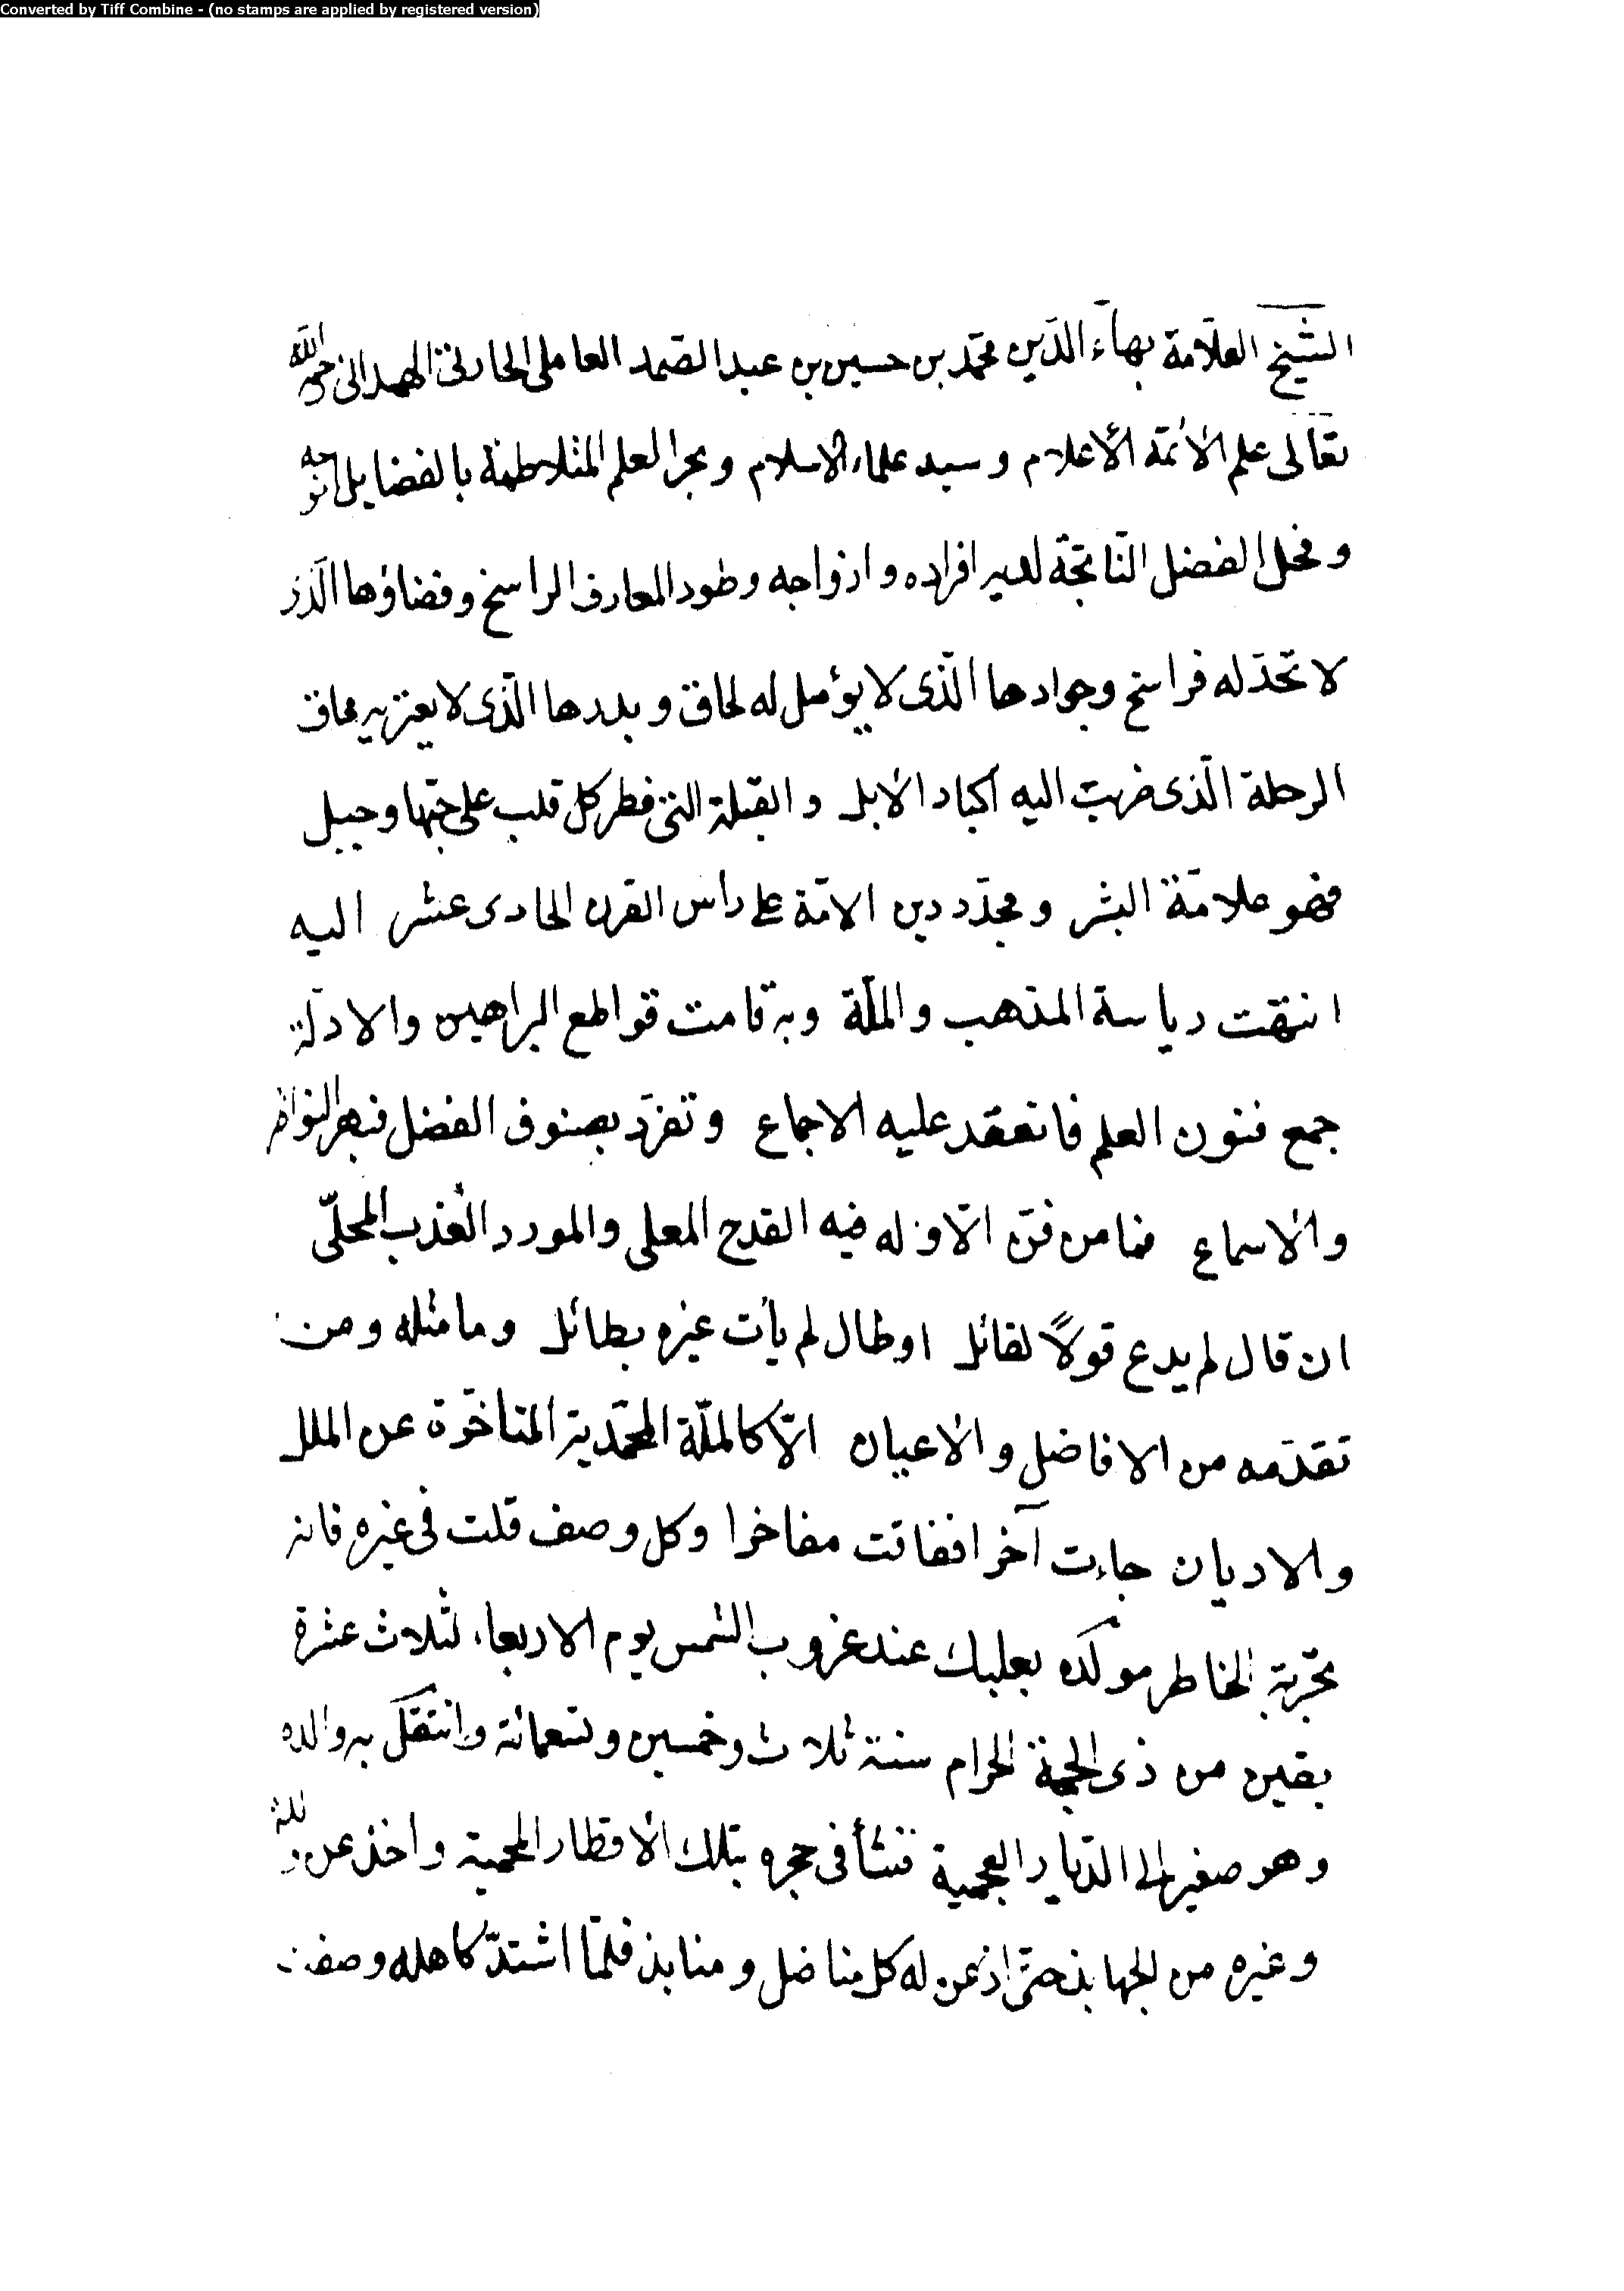 Converted by Tiff Combine - (no stamps are applied by registered version)
الشيخ العلّامة بهاء الدّين محمّد بن حسين بن عبد الصّمد العاملى الحارثى الهمدانى رحمه الله
تعالى علم الأئمّة الأعلام وسيد علماء الاسلام وبحر العلم المتلاطمة بالفضايل امواجه
وفحل الفضل النّاتجة لديه افراده وازواجه وطود المعارف الراسخ وفضاؤها الّذى
لا تحدّ له فراسخ وجوادها الّذى لا يؤمل له لحاق وبدرها الّذى لا يعتريه محاق
الرحلة الّذى ضربت اليه اكباد الابل والقبلة التى فطر كل قلب على حبّها وجبل
فهو علامّة البشر ومجدّد دين الامّة على راس القرن الحادى عشر اليه
انتهت رياسة المذهب والملّة وبه قامت قواطع البراهين والادلّة
جمع فنون العلم فانعقد عليه الاجماع وتفرّد بصنوف الفضل فبهر النواظر
والاسماع فما من فنّ الّا وله فيه القدح المعلى والمورد العذب المحلّى
ان قال لم يدع قولاً لقائل اوطال لم يأت غيره بطائل وما مثله ومن
تقدّمه من الافاضل والاعيان الّا كالملّة المحمّديّة المتاخرة عن الملل
والاديان جاءت آخرا ففاقت مفاخرا وكل وصف قلت فى غيره فانه
تجربة الخاطر مولده بعلبك عند غروب الشمس يوم الاربعاء لثلاث عشرة
بقين من ذى الحجة الحرام سنة ثلاث وخمسين وتسعمائة وانتقل به والده
وهو صغير الى الدّيار العجمية فنشأ فى حجره بتلك الاقطار المحمية واخذ عن والده
وغيره من الجهابذ حتى اذعن له كل مناضل ومنابذ فلمّا اشتدّ كاهله وصفت